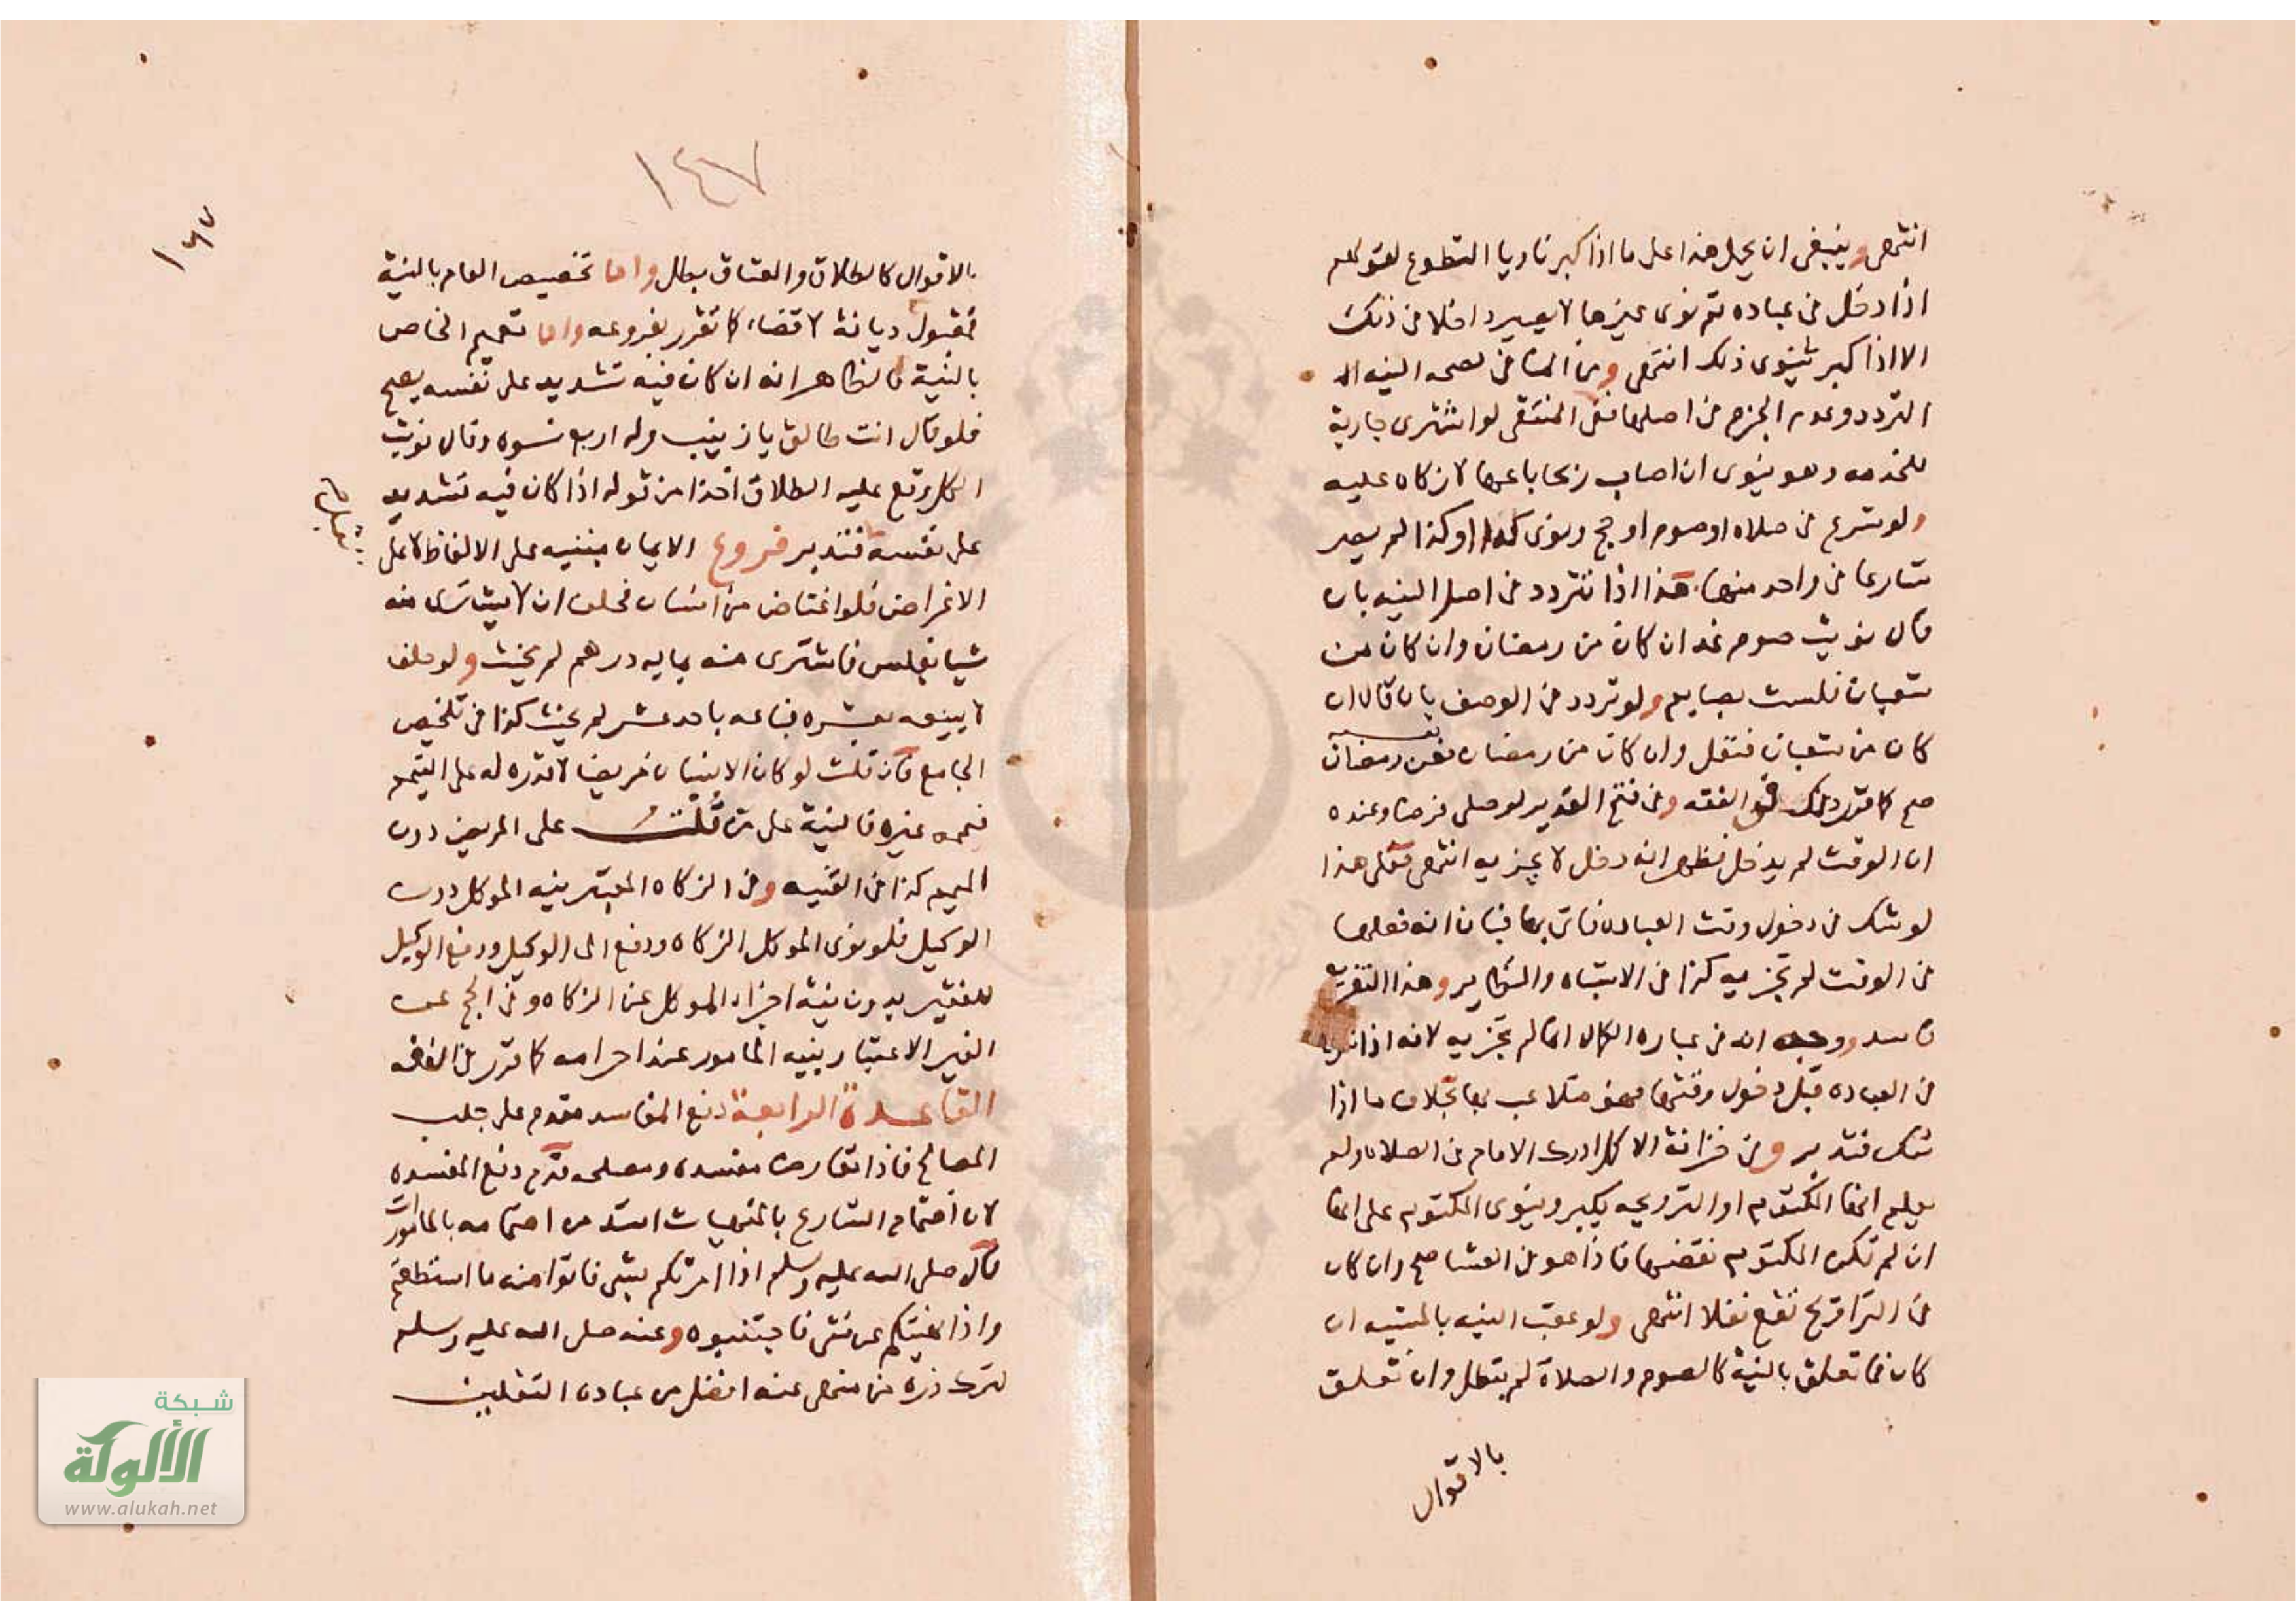 انتهى وينبغي ان يحمل هذا على ما اذا كبر ناويا التطوع لقولهم
اذا دخل في عباده ثم نوى غيرها لا يصير داخلا في ذلك
الا اذا كبر ينوي ذلك انتهى ومن المنافي لصحه النيه
التردد وعدم الجزم في اصلها ففي المنتقى لو اشترى جارية
للخدمه وهو ينوى ان اصاب ربحا باعها لا زكاه عليه
ولو شرع في صلاه او صوم او حج ونوى كذا او كذا لم يصر
شارعا في واحد منها هذا اذا تردد في اصل النيه بان
قال نويت صوم غد ان كان من رمضان وان كان من
شعبان فلست بصايم ولو تردد في الوصف بان قال ان
كان من شعبان فنفل وان كان من رمضان فعن رمضان
صح كما تقرر ذلك في الفقه وفي فتح القدير لو صلى فرضا وعنده
ان الوقت لم يدخل فظهر انه دخل لا يجزيه انتهى فعلى هذا
لو شك في دخول وقت العباده فاتى بها فبان انه فعلها
في الوقت لم تجزيه كذا في الاشباه والنظاير وهذا التفريع
فاسد ووجهه انه في عباره الكمال انما لم تجزيه لانه اذا
في العباده قبل دخول وقتها فهو متلاعب بها بخلاف ما اذا
شك فتدبر وفي خزانة الاكمل ادرك الامام في الصلاه ولم
يعلم انها المكتوبه او الترويحه يكبر وينوى المكتوبه على انها
ان لم تكن المكتوبه نقضها فاذا هو في العشا صح وان كان
في التراويح تقع نفلا انتهى ولو عقب النيه بالمشيه ان
كان مما تعلق بالنية كالصوم والصلاة لم يبطل وان تعلق
بالاقوال
١٤٧
١٤٧
بالاقوال كالطلاق والعتاق بطل واما تخصيص العام بالنية
فمقبول ديانة لا قضاء كما تقرر بفروعه واما تعميم الخاص
بالنية فالظاهر انه ان كان فيه تشديد على نفسه يصح
فلو قال انت طالق يا زينب وله اربع نسوه وقال نويت
الكل وقع عليه الطلاق اخذا من قوله اذا كان فيه تشديد
على نفسه فتدبر فروع الايمان مبنيه على الالفاظ لا على
الاغراض فلو اغتاض من انسان فحلف ان لا يشترى منه
شيا بفلس فاشترى منه بمايه درهم لم يحنث ولو حلف
لا يبيعه بعشره فباعه باحد عشر لم يحنث كذا في تلخيص
الجامع فان قلت لو كان الانسان مريضا لا قدره له على التيمم
فيممه غيره فالنية على من قلت على المريض دون
الميمم كذا في القنيه وفي الزكاه المعتبر نيه الموكل دون
الوكيل فلو نوى الموكل الزكاه ودفع الى الوكيل ودفع الوكيل
للفقير بدون نية اجزاء الموكل عن الزكاه وفي الحج عن
الغير الاعتبار بنيه المامور عند احرامه كما تقرر في الفقه
القاعدة الرابعة دفع المفاسد مقدم على جلب
المصالح فاذا تعارض مفسده ومصلحه قدم دفع المفسده
لان اهتمام الشارع بالمنهيات اشد من اهتمامه بالمامورات
قال صلى الله عليه وسلم اذا امرتكم بشي فاتوا منه ما استطعتم
واذا نهيتكم عن شي فاجتنبوه وعنه صلى الله عليه وسلم
لترك ذره من منهى عنه افضل من عبادة الثقلين
شبكة
الألوكة
www.alukah.net